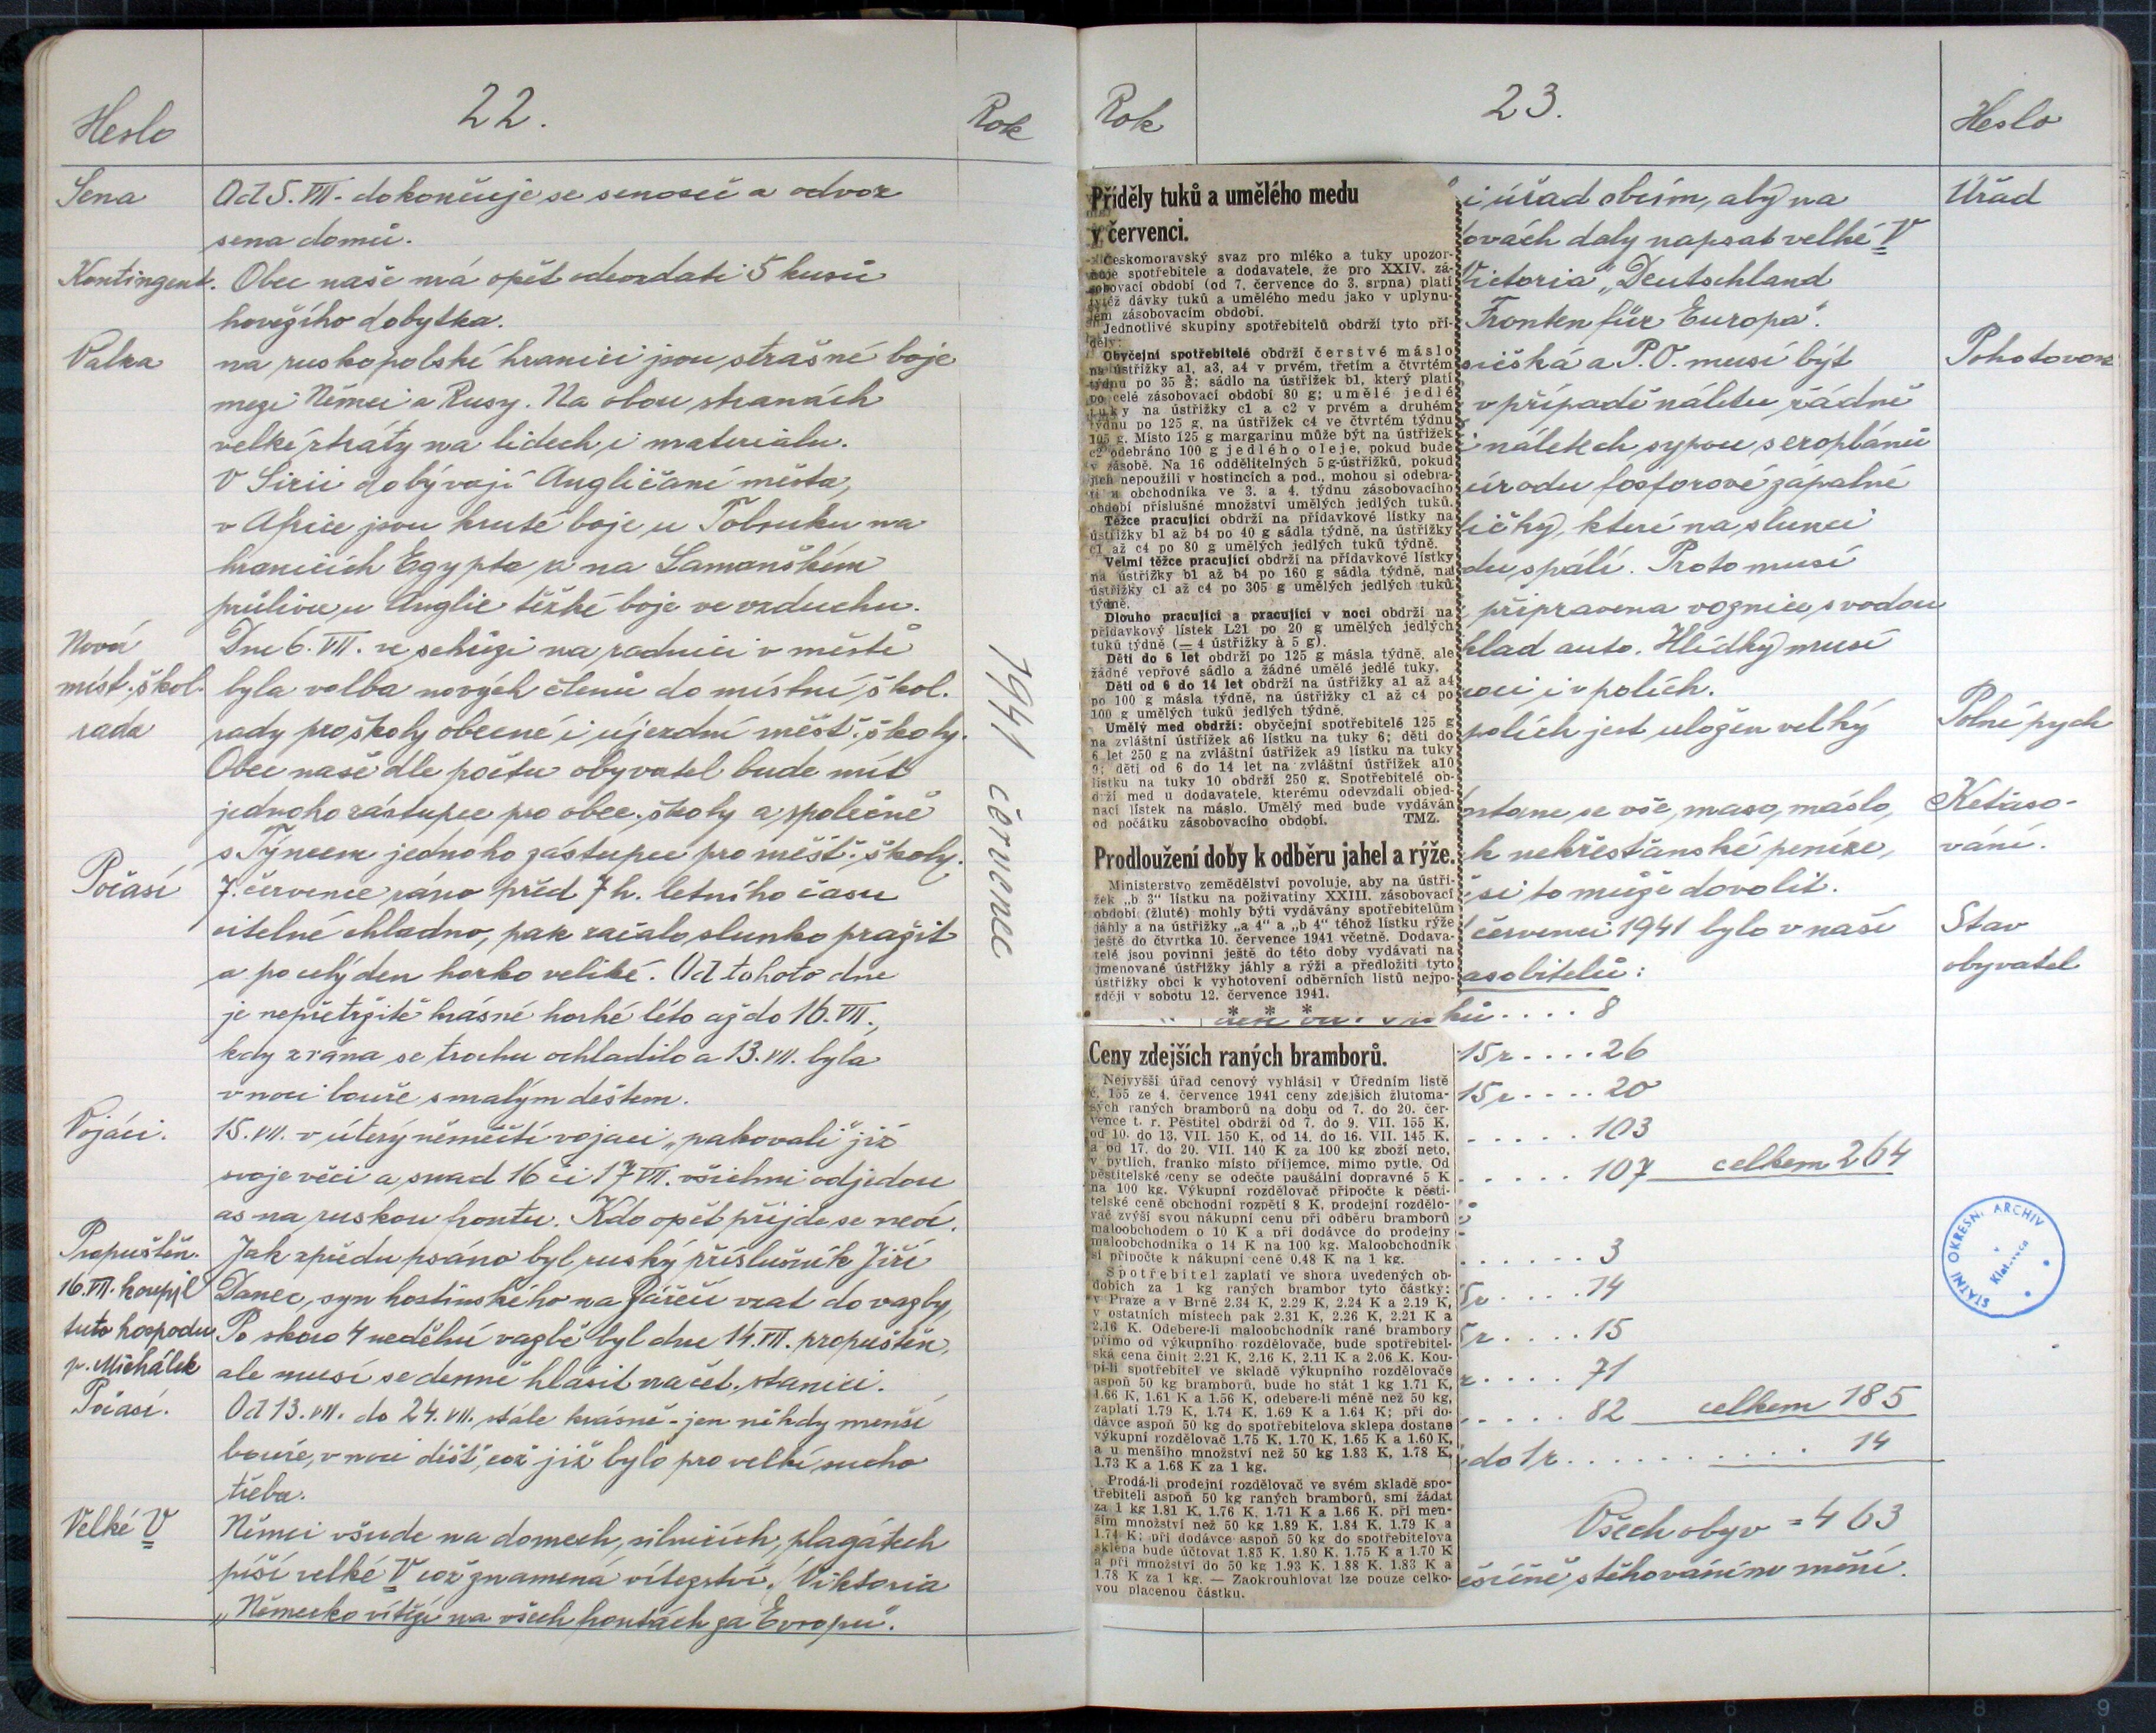 Heslo
22.
Rok
Sena
Od 5. VII. dokončuje se senoseč a odvoz
sena domů.
Kontingent.
Obec naše má opět odevzdati 5 kusů
hovězího dobytka.
Válka
na ruskopolské hranici jsou strašné boje
mezi Němci a Rusy. Na obou stranách
velké ztráty na lidech i materiálu.
V Sirii dobývají Angličané města,
v Africe jsou kruté boje u Tobruku na
hranicích Egypta, a na Lamanškém
průlivu u Anglie těžké boje ve vzduchu.
Nová
míst. škol.
rada
Dne 6. VII. ve schůzi na radnici v městě
byla volba nových členů do místní škol.
rady pro školy obecné i újezdní měšť. školy.
Obec naše dle počtu obyvatel bude mít
jednoho zástupce pro obec. školy a společně
s Týncem jednoho zástupce pro měšť. školy.
Počasí
7. července ráno před 7 h. letního času
citelné chladno, pak začalo slunko pražit
a po celý den horko veliké. Od tohoto dne
je nepřetržitě krásné horké léto až do 16. VII.,
kdy zrána se trochu ochladilo a 13. VII. byla
v noci bouře s malým deštem.
Vojáci.
15. VII. v úterý němečtí vojaci „pakovali" již
svoje věci a snad 16 či 17 VII. všichni odjedou
as na ruskou frontu. Kdo opět přijde se neví.
Propuštěn.
16. VII. koupil
tuto hospodu
p. Michálek
Jak zpředu psáno byl ruský příslušník Jiří
Danec, syn hostinského na Záření vzat do vazby,
Po skoro 4 nedělní vazbě byl dne 14. VII. propuštěn,
ale musí se denně hlásit na čet. stanici.
Počasí.
Od 13. VII. do 24. VII. stále krásně - jen někdy menší
bouře, v noci déšť, což již bylo pro velké sucho
třeba.
Velké V
Němci všude na domech, silnicích, plagátech
píší velké V což znamená vítězství. Viktoria
„Německo vítězí na všech frontách za Evropu".
1941 červenec
Rok
23.
Heslo
Příděly tuků a umělého medu
v červenci.
Českomoravský svaz pro mléko a tuky upozor-
ňuje spotřebitele a dodavatele, že pro XXIV. zá-
sobovací období (od 7. července do 3. srpna) platí
tytéž dávky tuků a umělého medu jako v uplynu-
lém zásobovacím období.
Jednotlivé skupiny spotřebitelů obdrží tyto pří-
děly:
Obyčejní spotřebitelé obdrží čerstvé máslo
na ústřižky a1, a3, a4 v prvém, třetím a čtvrtém
týdnu po 35 g; sádlo na ústřižek b1, který platí
po celé zásobovací období 80 g; umělé jedlé
tuky na ústřižky c1 a c2 v prvém a druhém
týdnu po 125 g, na ústřižek c4 ve čtvrtém týdnu
105 g. Místo 125 g margarinu může být na ústřižek
c2 odebráno 100 g jedlého oleje, pokud bude
v zásobě. Na 16 oddělitelných 5 g-ústřižků, pokud
jich nepoužili v hostincích a pod., mohou si odebra-
ti u obchodníka ve 3. a 4. týdnu zásobovacího
období příslušné množství umělých jedlých tuků.
Těžce pracující obdrží na přídavkové lístky na
ústřižky b1 až b4 po 40 g sádla týdně, na ústřižky
c1 až c4 po 80 g umělých jedlých tuků týdně.
Velmi těžce pracující obdrží na přídavkové lístky
na ústřižky b1 až b4 po 160 g sádla týdně, na
ústřižky c1 až c4 po 305 g umělých jedlých tuků
týdně.
Dlouho pracující a pracující v noci obdrží na
přídavkový lístek L21 po 20 g umělých jedlých
tuků týdně (= 4 ústřižky à 5 g).
Děti do 6 let obdrží po 125 g másla týdně, ale
žádné vepřové sádlo a žádné umělé jedlé tuky.
Děti od 6 do 14 let obdrží na ústřižky a1 až a4
po 100 g másla týdně, na ústřižky c1 až c4 po
100 g umělých tuků jedlých týdně.
Umělý med obdrží: obyčejní spotřebitelé 125 g
na zvláštní ústřižek a6 lístku na tuky 6; děti do
6 let 250 g na zvláštní ústřižek a9 lístku na tuky
9; děti od 6 do 14 let na zvláštní ústřižek a10
lístku na tuky 10 obdrží 250 g. Spotřebitelé ob-
drží med u dodavatele, kterému odevzdali objed-
nací lístek na máslo. Umělý med bude vydáván
od počátku zásobovacího období. TMZ.
Prodloužení doby k odběru jahel a rýže.
Ministerstvo zemědělství povoluje, aby na ústři-
žek „b 3" lístku na poživatiny XXIII. zásobovací
období (žluté) mohly býti vydávány spotřebitelům
jáhly a na ústřižky „a 4" a „b 4" téhož lístku rýže
ještě do čtvrtka 10. července 1941 včetně. Dodava-
telé jsou povinni ještě do této doby vydávati na
jmenované ústřižky jáhly a rýži a předložiti tyto
ústřižky obci k vyhotovení odběrních listů nejpo-
zději v sobotu 12. července 1941.
* * *
Ceny zdejších raných bramborů.
Nejvyšší úřad cenový vyhlásil v Úředním listě
č. 155 ze 4. července 1941 ceny zdejších žlutoma-
sých raných bramborů na dobu od 7. do 20. čer-
vence t. r. Pěstitel obdrží od 7. do 9. VII. 155 K,
od 10. do 13. VII. 150 K, od 14. do 16. VII. 145 K,
a od 17. do 20. VII. 140 K za 100 kg zboží neto,
v pytlích, franko místo příjemce, mimo pytle. Od
pěstitelské ceny se odečte paušální dopravné 5 K
na 100 kg. Výkupní rozdělovač připočte k pěsti-
telské ceně obchodní rozpětí 8 K, prodejní rozdělo-
vač zvýší svou nákupní cenu při odběru bramborů
maloobchodem o 10 K a při dodávce do prodejny
maloobchodníka o 14 K na 100 kg. Maloobchodník
si připočte k nákupní ceně 0.48 K na 1 kg.
Spotřebitel zaplatí ve shora uvedených ob-
dobích za 1 kg raných brambor tyto částky:
v Praze a v Brně 2.34 K, 2.29 K, 2.24 K a 2.19 K,
v ostatních místech pak 2.31 K, 2.26 K, 2.21 K a
2.16 K. Odebere-li maloobchodník rané brambory
přímo od výkupního rozdělovače, bude spotřebitel-
ská cena činit 2.21 K, 2.16 K, 2.11 K a 2.06 K. Kou-
pí-li spotřebitel ve skladě výkupního rozdělovače
aspoň 50 kg bramborů, bude ho stát 1 kg 1.71 K,
1.66 K, 1.61 K a 1.56 K, odebere-li méně než 50 kg,
zaplatí 1.79 K, 1.74 K, 1.69 K a 1.64 K; při do-
dávce aspoň 50 kg do spotřebitelova sklepa dostane
výkupní rozdělovač 1.75 K, 1.70 K, 1.65 K a 1.60 K,
a u menšího množství než 50 kg 1.83 K, 1.78 K,
1.73 K a 1.68 K za 1 kg.
Prodá-li prodejní rozdělovač ve svém skladě spo-
třebiteli aspoň 50 kg raných bramborů, smí žádat
za 1 kg 1.81 K, 1.76 K, 1.71 K a 1.66 K, při men-
ším množství než 50 kg 1.89 K, 1.84 K, 1.79 K a
1.74 K; při dodávce aspoň 50 kg do spotřebitelova
sklepa bude účtovat 1.85 K, 1.80 K, 1.75 K a 1.70 K
a při množství do 50 kg 1.93 K, 1.88 K, 1.83 K a
1.78 K za 1 kg. — Zaokrouhlovat lze pouze celko-
vou placenou částku.
i úřad obcím, aby na
Úřad
ovách daly napsat velké V
Victoria „Deutschland
Fronten für Europa".
sičská a P.O. musí být
Pohotovost
v případě náletu řádně
náletech sypou s eroplánů
úrodu fosforové zápalné
ličky, které na slunci
du spálí. Proto musí
připravena voznice s vodou
klad auto. Hlídky musí
noci i v polích.
polích jest uložen velký
Polní pych
ntane, se vše, maso, máslo,
Keťaso-
vání.
k nekřesťanské peníze,
si to může dovolit.
červenci 1941 bylo v naší
Stav
obyvatel
asobitelů:
ků .... 8
15 r .... 26
15 r .... 20
..... 103
..... 107 celkem 264
...... 3
r ..... 14
r .... 15
r .... 71
..... 82 celkem 185
do 1 r. ........ 14
Všech obyv = 463
ěsíčně stěhováním mění.
STÁTNÍ OKRESNÍ ARCHIV
Klatovy
5 6 7 8 9